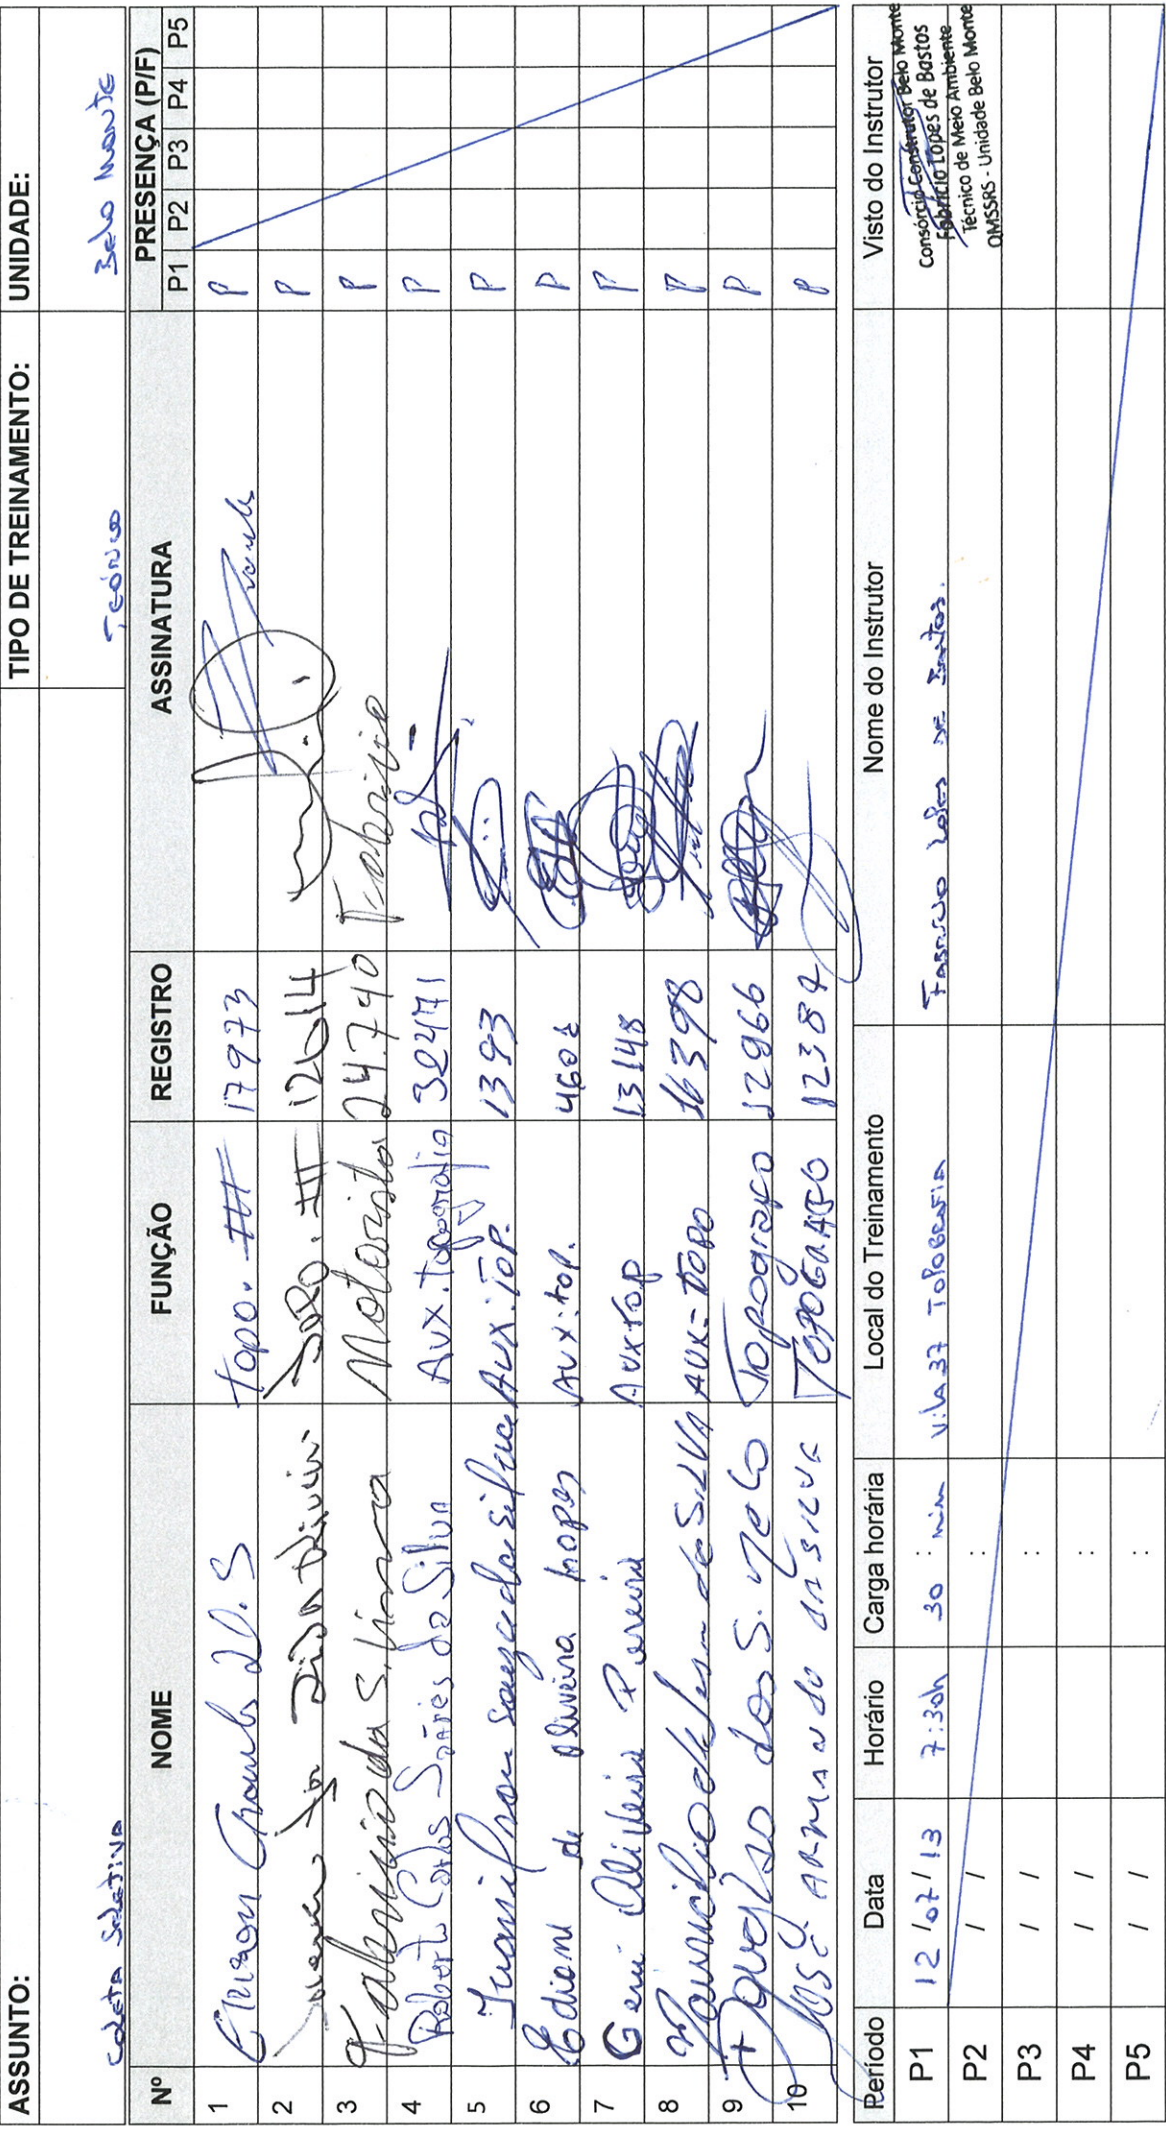 ASSUNTO: TIPO DE TREINAMENTO: UNIDADE:
Coleta Seletiva Teórico Belo Monte
Nº NOME FUNÇÃO REGISTRO ASSINATURA PRESENÇA (P/F)
P1 P2 P3 P4 P5
1 Topo. III 17973 P
2 Topo. III 12614 P
3 Fabricio da S. Lima Motorista 24.740 Fabricio P
4 Roberto Carlos Soares da Silva Aux. Topografia 32471 P
5 Souza da Silva Aux. Top. 1393 P
6 Ediane de Oliveira Lopes Aux. top. P
7 Oliveira Pereira Aux top 13148 P
8 da SILVA AUX = TOPO 16398 P
9 dos S. Melo Topografo 12966 P
10 José Armando da Silva TOPOGRAFO 12387 P
Período Data Horário Carga horária Local do Treinamento Nome do Instrutor Visto do Instrutor
P1 12/07/13 7:30h 30 : min Vila 37 Topografia Fabricio Lopes de Bastos.
Consórcio Construtor Belo Monte
Fabrício Lopes de Bastos
Técnico de Meio Ambiente
QMSSRS - Unidade Belo Monte
P2 / / :
P3 / / :
P4 / / :
P5 / / :